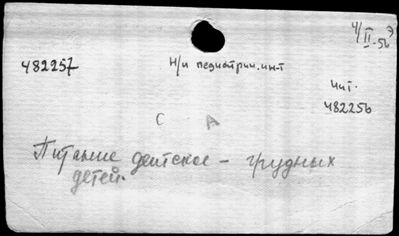 4/II-56 э
482257
Н/и педиатрич. ин-т
Чит.
482256
С А
Питание детское - грудных
детей.